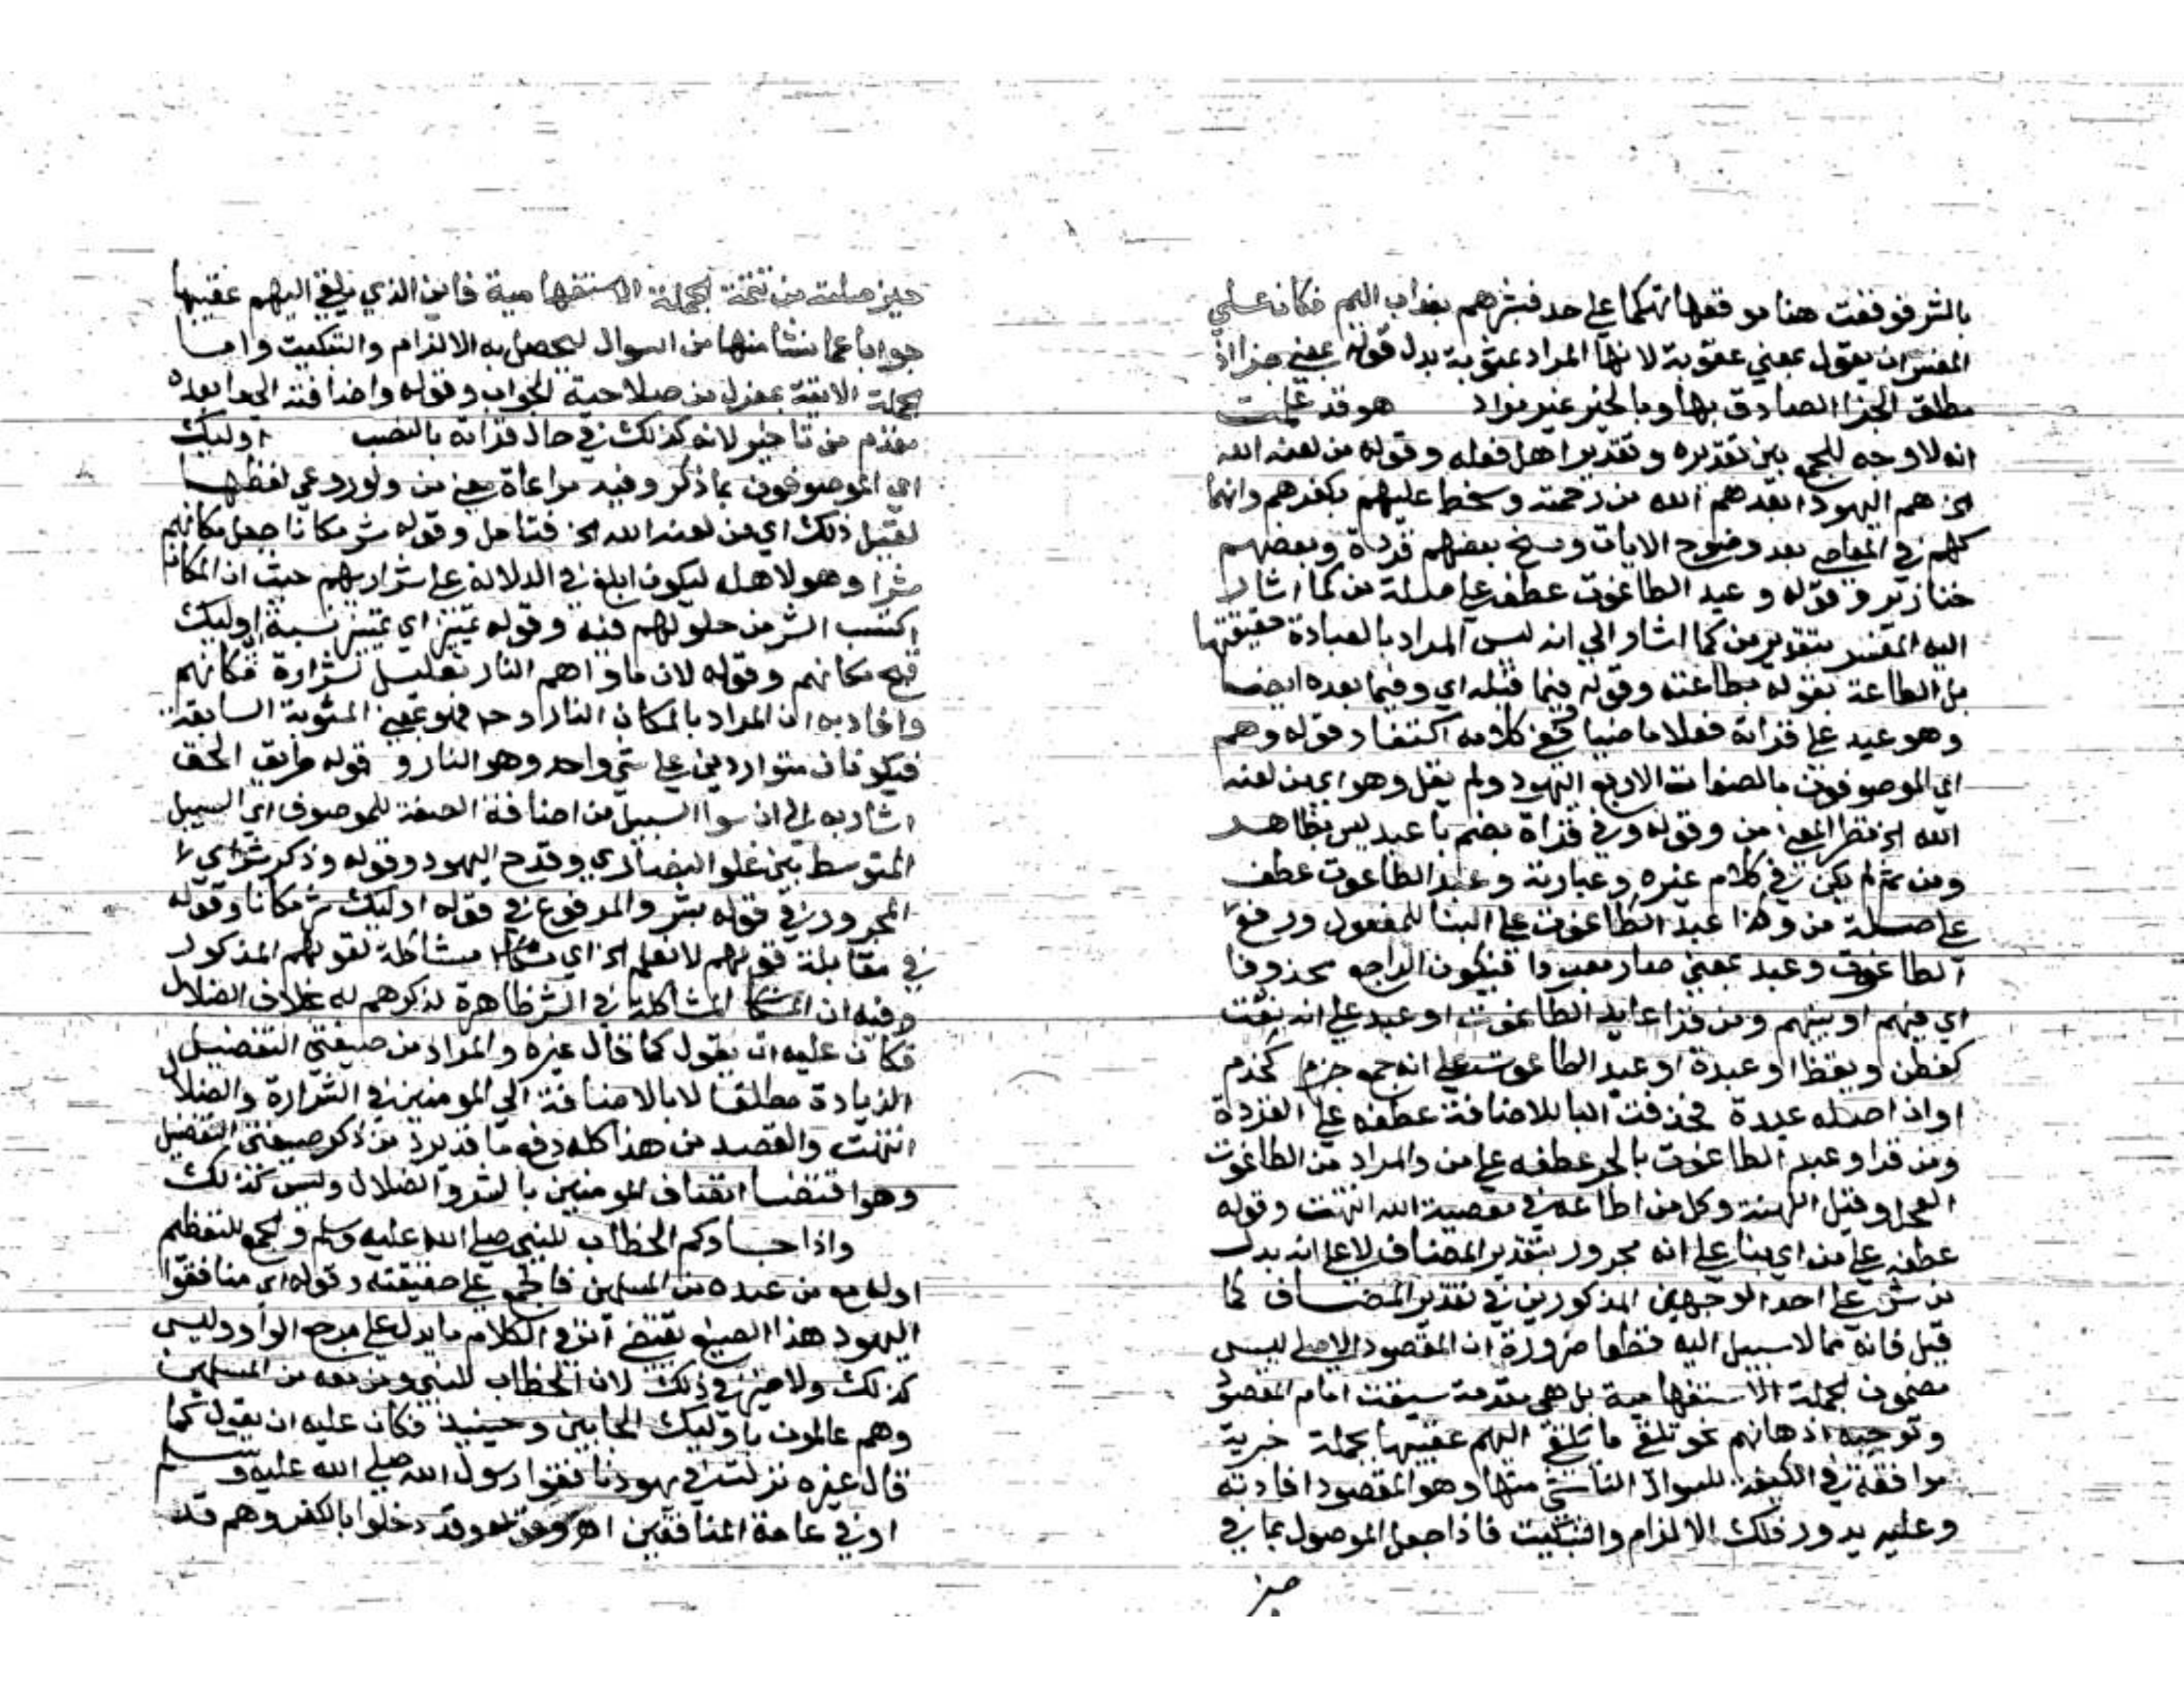 بالشر فوقفت هنا موقفها تهكما على حد فبشرهم بعذاب اليم فكان على
المفسر ان يقول بمعني عقوبة لانها المراد عقوبة بدل قوله بمعني جزا اذ
مطلق الجزا الصادق بها وبالخير غير مراد هو وقد علمت
انه لا وجه للجمع بين تقديره وتقدير اهل فعله وقوله من لعنه الله
الخ هم اليهود ابعدهم الله من رحمته وسخط عليهم بكفرهم وانهما
كهم في المعاصي بعد وضوح الايات ومسخ بعضهم قردة وبعضهم
خنازير وقوله وعبد الطاغوت عطف على صلة من كما اشار
اليه المفسر بتقدير من كما اشار الي انه ليس المراد بالعبادة حقيقتها
بل الطاعة بقوله بطاعته وقوله فيما قبله اي وفيما بعده ايضا
وهو عبد على قراة فعلا ماضيا ففي كلامه اكتفا وقوله وهم
اي الموصوفون بالصفات الاربع اليهود ولم يقل وهو اي من لعنه
الله الخ نظرا لمعني من وقوله وفي قراة بضم با عبد ليس بظاهر
ومن ثم لم يكن في كلام غيره وعبارته وعبد الطاغوت عطف
على صلة من وكذا عبد الطاغوت على البنا للمفعول ورفع
الطاغوت وعبد بمعني صار معبودا فيكون الراجع محذوفا
اي فيهم او بينهم ومن قرا عابد الطاغوت او عبد على انه نعت
كفطن ويقظ او عبدة او عبد الطاغوت على انه جمع كخدم
او ان اصله عبدة فحذفت التا للاضافة عطفه على القردة
ومن قرا وعبد الطاغوت بالجر عطفه على من والمراد من الطاغوت
العجل وقيل الكهنة وكل من اطاعه في معصية الله انتهت وقوله
عطف على من اي بنا على انه مجرور بتقدير المضاف لا على انه بدل
من شر على احد الوجهين المذكورين في تقدير المضاف كما
قيل فانه مما لا سبيل اليه قطعا ضرورة ان المقصود الاصلي ليس
مضمون الجملة الاستفهامية بل هي مقدمة سيقت امام المقصود
وتوجيه اذهانهم نحو تلقي ما يلقي اليهم عقيبها بجملة خبرية
موافقة في الكيفية للسوال الناشي منها وهو المقصود افادته
وعليه يدور فلك الالزام والتبكيت فاذا جعل الموصول بما في
حيز
حيز صلته من تتمة الجملة الاستفهامية فاين الذي يلقي اليهم عقيبها
جوابا عما نشا منها من السوال ليحصل به الالزام والتبكيت واما
الجملة الاتية بمعزل من صلاحية الجواب وقوله واضافته الي ما بعده
مقدم من تاخير لانه كذلك في حال قراته بالنصب اوليك
اي الموصوفون بما ذكر وفيه مراعاة معني من ولو روعي لفظها
لقيل ذلك اي من لعنه الله الخ فتامل وقوله شر مكانا جعل مكانهم
شرا وهو لاهله ليكون ابلغ في الدلالة على شرارتهم حيث ان المكان
اكتسب الشر من حلولهم فيه وقوله تمييز اي تمييز نسبة اوليك
قبح مكانهم وقوله لان ماواهم النار تعليل لشرارة مكانهم
وافاد به ان المراد بالمكان النار فهو بمعني المثوبة السابقة
فيكونان متواردين على شي واحد وهو النار وقوله طريق الحق
اشار به الى ان سوا السبيل من اضافة الصفة للموصوف اي السبيل
المتوسط بين غلو النصاري وقدح اليهود وقوله وذكر شر اي
المجرور في قوله بشر والمرفوع في قوله اوليك شر مكانا وقوله
في مقابلة قولهم لا نعلم الخ اي مشاكلة لقولهم المذكور
وفيه ان المشاكلة في الشر ظاهرة لذكرهم له بخلاف الضلال
فكان عليه ان يقول كما قال غيره والمراد من صيغتي التفضيل
الزيادة مطلقا لا بالاضافة الي المومنين في الشرارة والضلال
انتهت والقصد من هذا كله دفع ما قد يرد من ذكر صيغتي التفضيل
وهو اقتضا اتصاف المومنين بالشر والضلال وليس كذلك
واذا جاوكم الخطاب للنبي صلى الله عليه وسلم والجمع للتعظيم
او له مع من عنده من المسلمين فالجمع على حقيقته وقوله اي منافقوا
اليهود هذا الصنيع يقتضي ان في الكلام ما يدل على مرجع الواو وليس
كذلك ولا ضير في ذلك لان الخطاب للنبي ومن معه من المسلمين
وهم عالمون باوليك الجايين وحينيذ فكان عليه ان يقول كما
قال غيره نزلت في يهود نافقوا رسول الله صلى الله عليه وسلم
او في عامة المنافقين اهـ وقوله وقد دخلوا بالكفر وهم قد